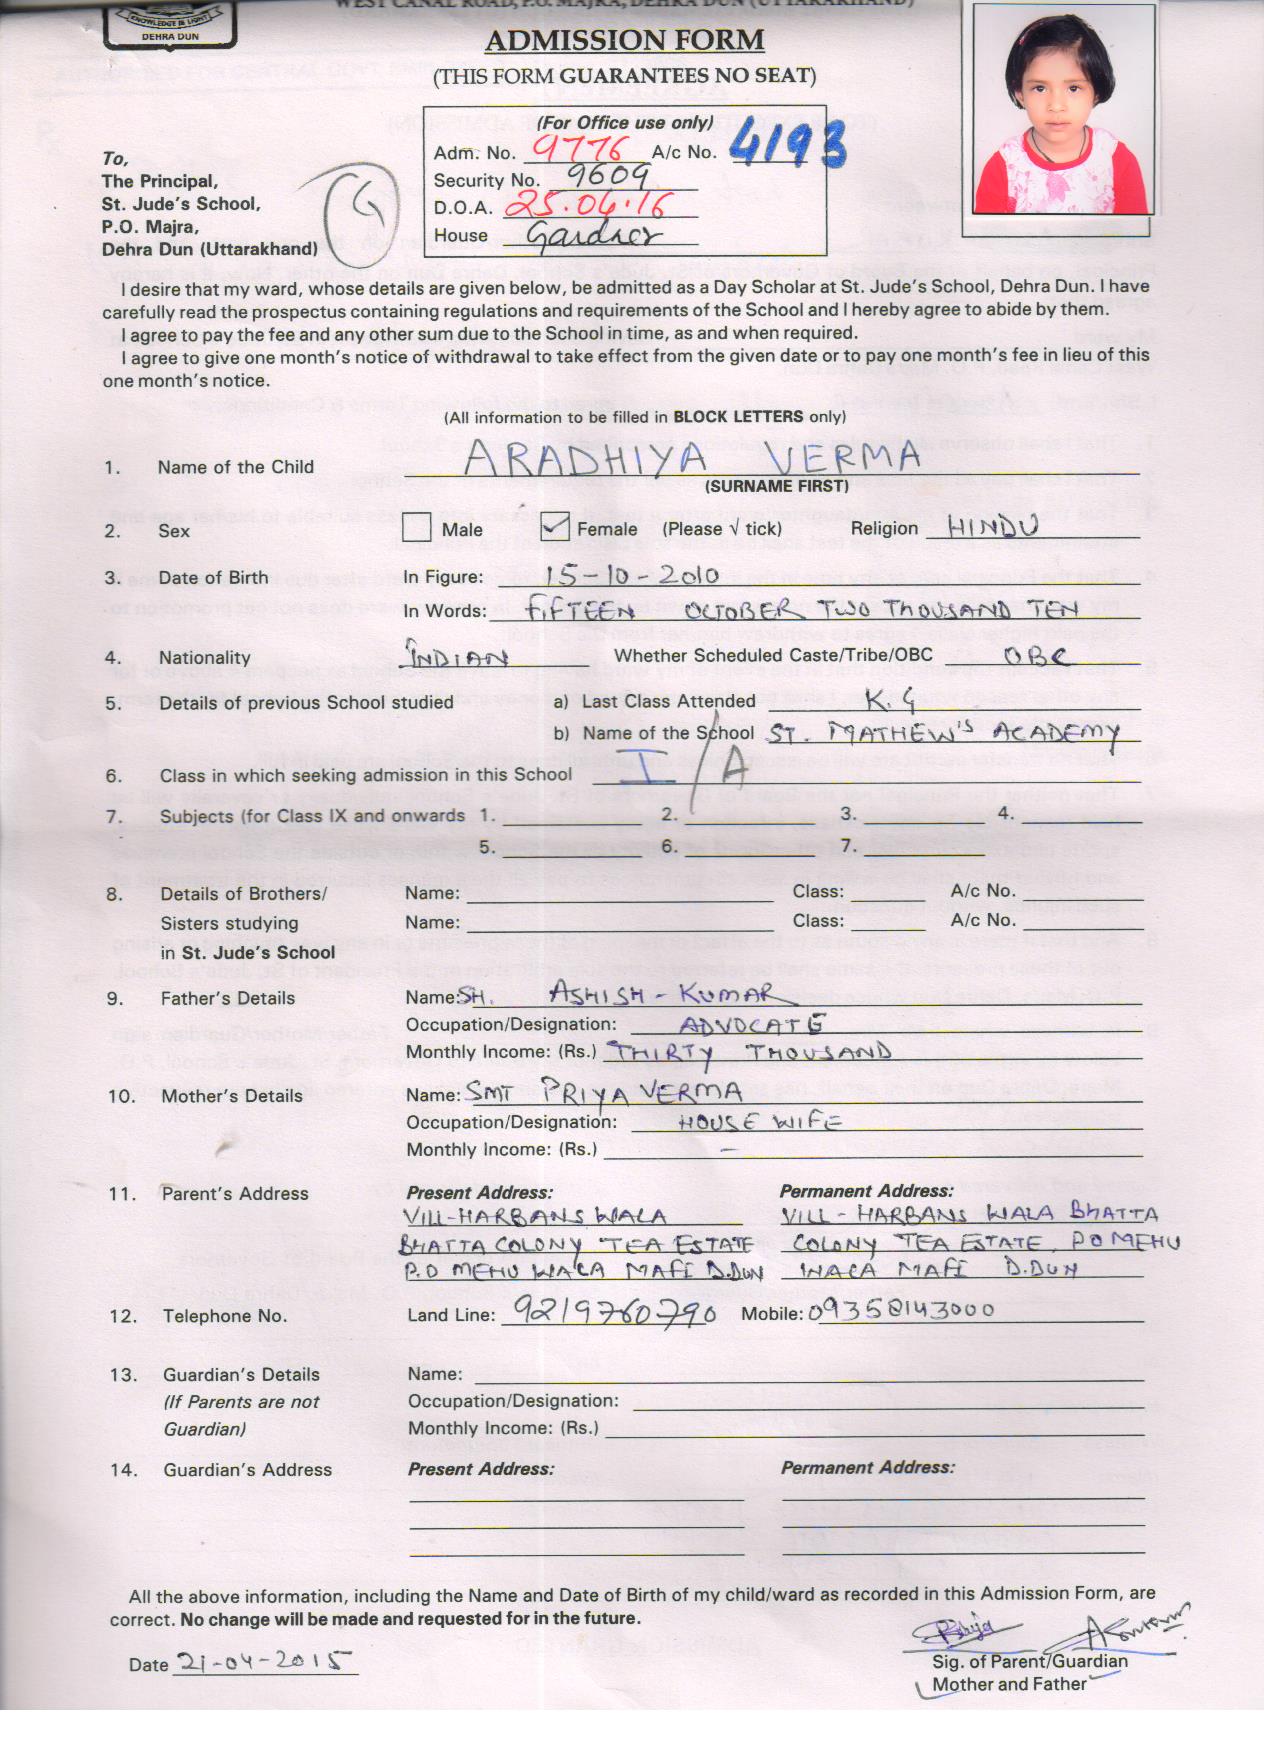 WEST CANAL ROAD, P.O. MAJRA, DEHRA DUN (UTTARAKHAND)
KNOWLEDGE IS LIGHT
DEHRA DUN
ADMISSION FORM
(THIS FORM GUARANTEES NO SEAT)
(For Office use only)
Adm. No. 9776 A/c No. 4193
Security No. 9609
D.O.A. 25.04.16
House Gardner
G
To,
The Principal,
St. Jude's School,
P.O. Majra,
Dehra Dun (Uttarakhand)
I desire that my ward, whose details are given below, be admitted as a Day Scholar at St. Jude's School, Dehra Dun. I have
carefully read the prospectus containing regulations and requirements of the School and I hereby agree to abide by them.
I agree to pay the fee and any other sum due to the School in time, as and when required.
I agree to give one month's notice of withdrawal to take effect from the given date or to pay one month's fee in lieu of this
one month's notice.
(All information to be filled in BLOCK LETTERS only)
1. Name of the Child ARADHIYA VERMA
(SURNAME FIRST)
2. Sex Male Female (Please √ tick) Religion HINDU
3. Date of Birth In Figure: 15-10-2010
In Words: FIFTEEN OCTOBER TWO THOUSAND TEN
4. Nationality INDIAN Whether Scheduled Caste/Tribe/OBC OBC
5. Details of previous School studied a) Last Class Attended K.G
b) Name of the School ST. MATHEW'S ACADEMY
6. Class in which seeking admission in this School I/A
7. Subjects (for Class IX and onwards 1. 2. 3. 4.
5. 6. 7.
8. Details of Brothers/ Name: Class: A/c No.
Sisters studying Name: Class: A/c No.
in St. Jude's School
9. Father's Details Name: SH. ASHISH - KUMAR
Occupation/Designation: ADVOCATE
Monthly Income: (Rs.) THIRTY THOUSAND
10. Mother's Details Name: SMT PRIYA VERMA
Occupation/Designation: HOUSE WIFE
Monthly Income: (Rs.) -
11. Parent's Address Present Address: Permanent Address:
VILL-HARBANS WALA VILL - HARBANS WALA BHATTA
BHATTA COLONY TEA ESTATE COLONY TEA ESTATE, PO MEHU
P.O MEHU WALA MAFI D.DUN WALA MAFI D.DUN
12. Telephone No. Land Line: 9219760790 Mobile: 09358143000
13. Guardian's Details Name:
(If Parents are not Occupation/Designation:
Guardian) Monthly Income: (Rs.)
14. Guardian's Address Present Address: Permanent Address:
All the above information, including the Name and Date of Birth of my child/ward as recorded in this Admission Form, are
correct. No change will be made and requested for in the future.
Date 21-04-2015
Sig. of Parent/Guardian
Mother and Father